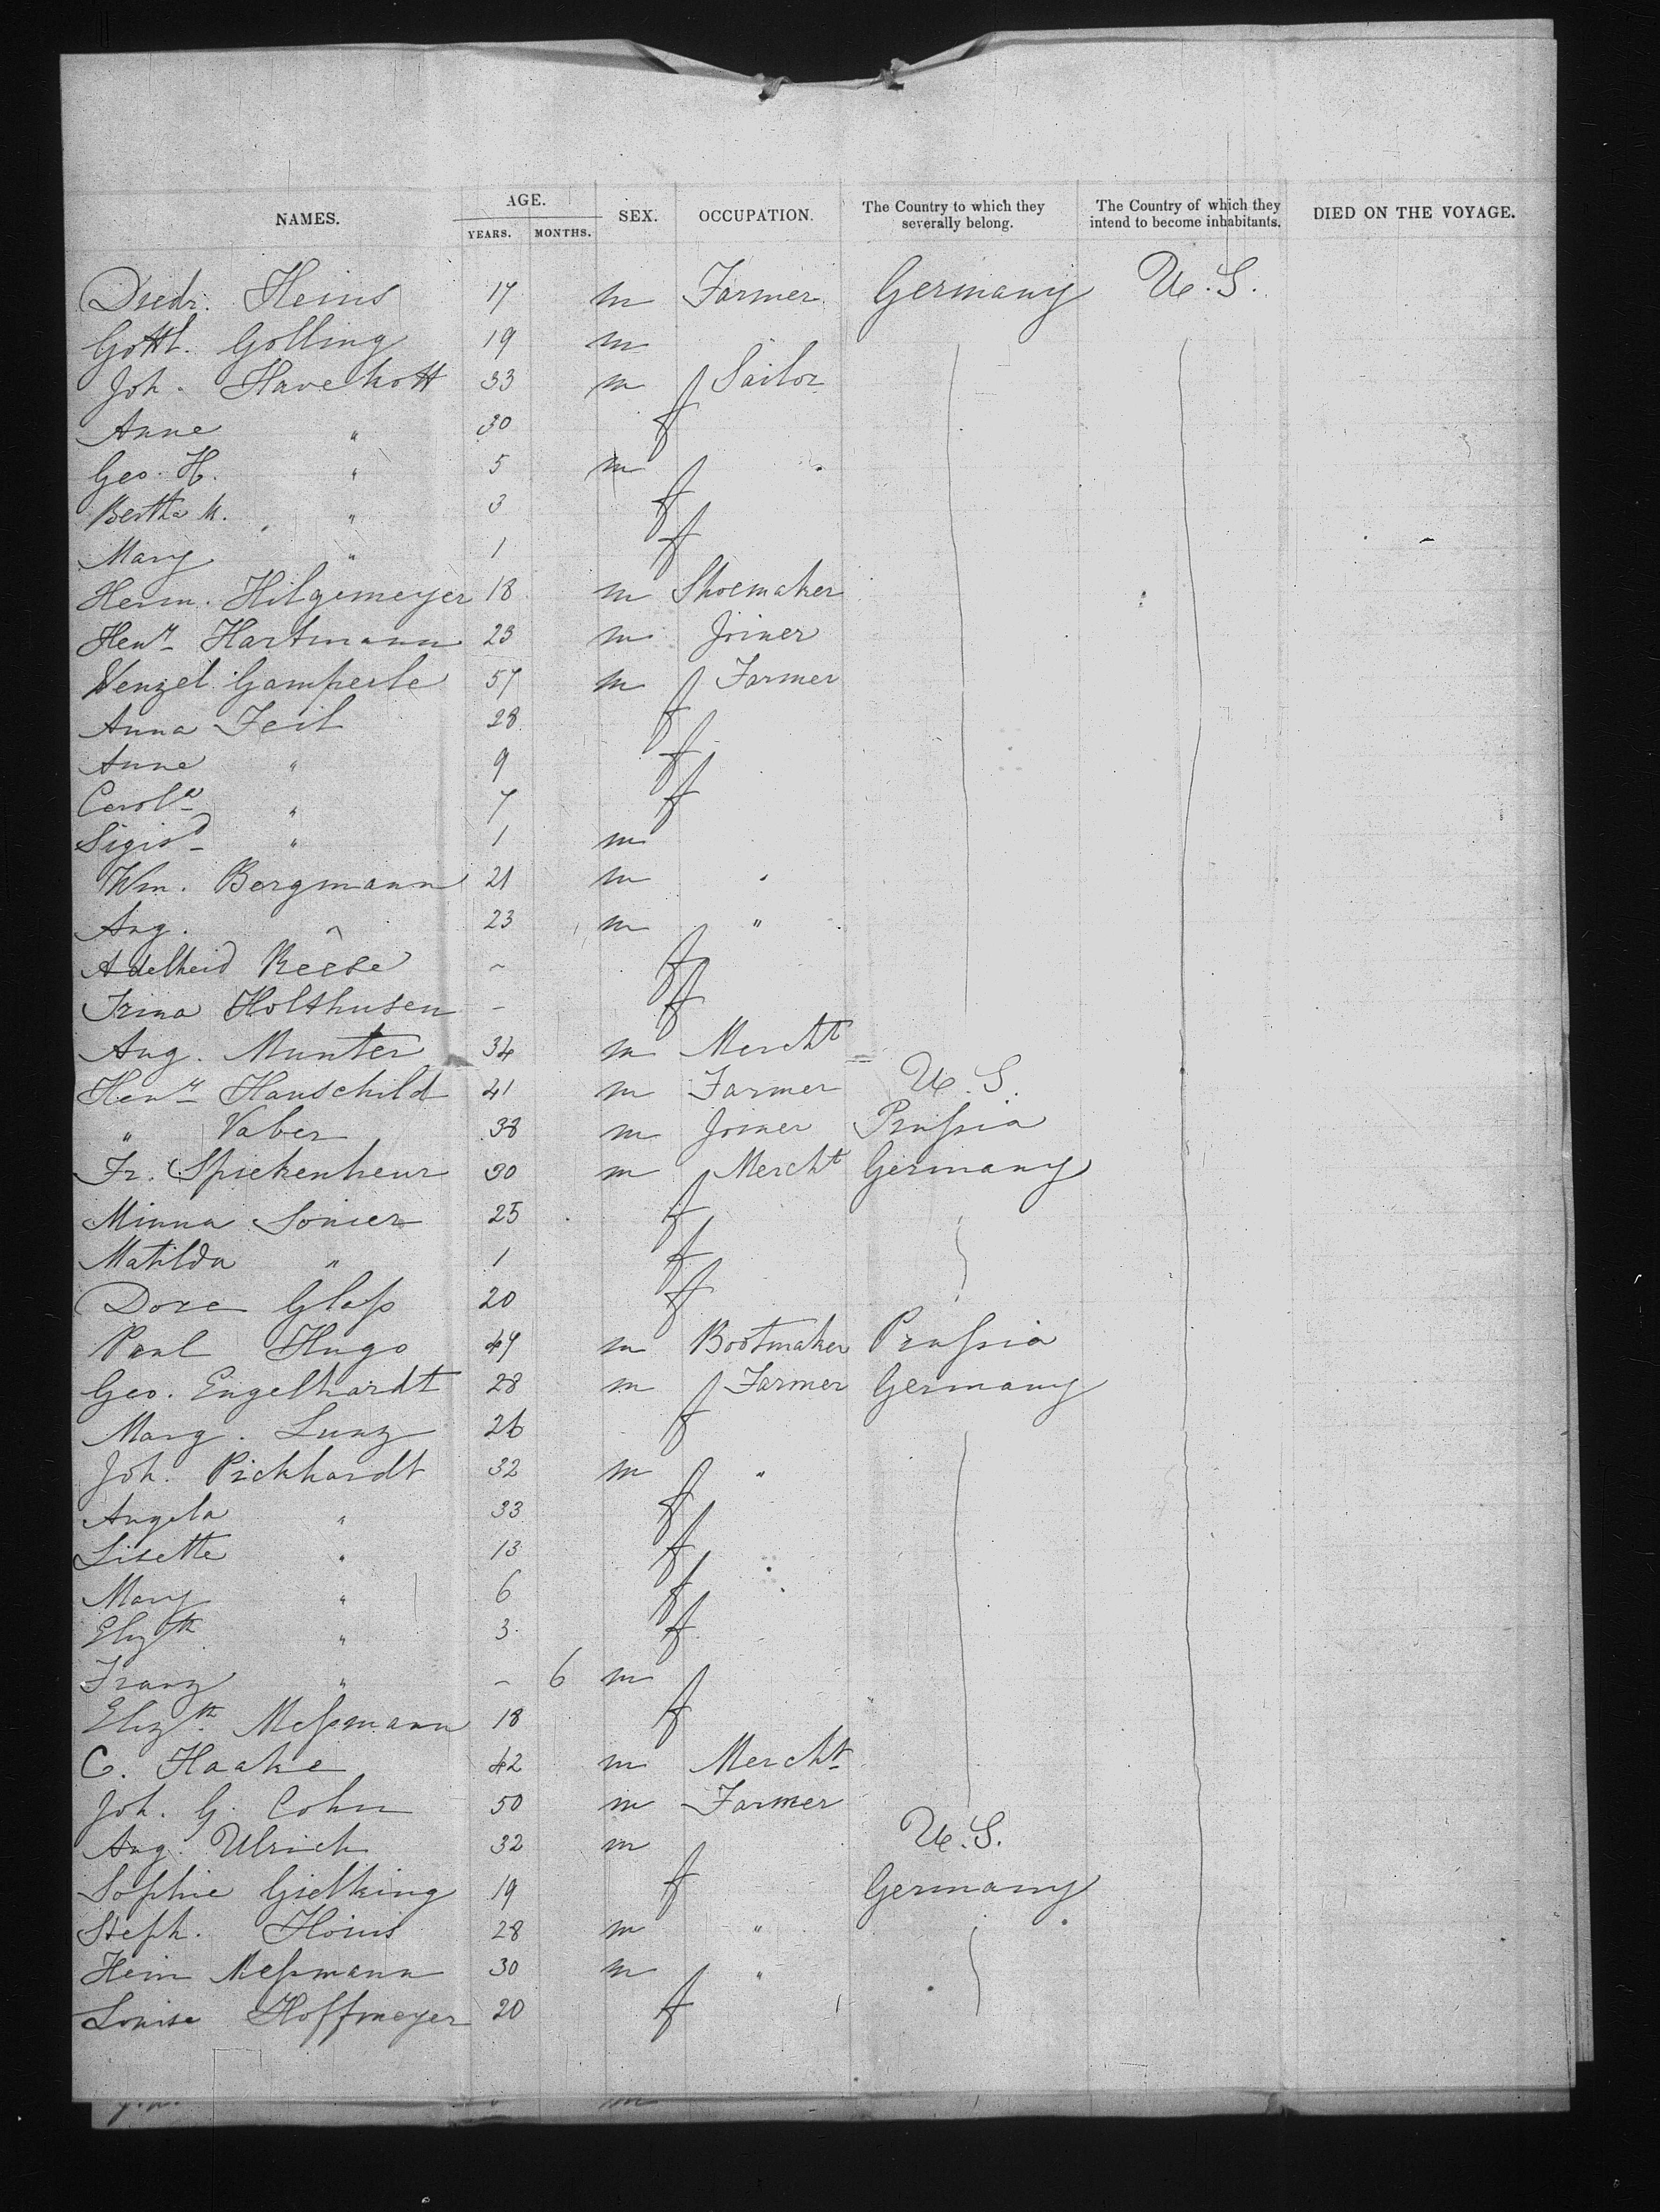 NAMES. AGE. YEARS. MONTHS. SEX. OCCUPATION. The Country to which they severally belong. The Country of which they intend to become inhabitants. DIED ON THE VOYAGE.
Diedr. Heins 17 m Farmer Germany U.S.
Gottl. Golling 19 m
Joh. Havekott 33 m Sailor
Anne " 30 f
Geo. H. " 5 m
Bertha M. " 3 f
Mary " 1 f
Herm. Hilgemeyer 18 m Shoemaker
Henry Hartmann 23 m Joiner
Wenzel Gamperle 57 m Farmer
Anna Feil 28 f
Anne " 9 f
Carola " 7 f
Sigisd " 1 m
Wm. Bergmann 21 m "
Aug. " 23 m "
Adelheid Reese - f
Trina Holthusen - f
Aug. Munter 34 m Mercht
Henry Hauschild 41 m Farmer U.S.
" Vaber 38 m Joiner Prussia
Fr. Spickenheur 30 m Mercht Germany
Minna Sonier 25 f
Matilda " 1 f
Dora Glass 20 f
Paul Hugo 49 m Bootmaker Prussia
Geo. Engelhardt 28 m Farmer Germany
Marg. Lunz 26 f
Joh. Pickhardt 32 m "
Angela " 33 f
Lisette " 13 f
Mary " 6 f
Elizth " 3 f
Franz " - 6 m
Elizth Messmann 18 f
C. Haake 42 m Mercht
Joh. G. Cohn 50 m Farmer
Aug. Ulrich 32 m U.S.
Sophie Gietking 19 f Germany
Steph. Hoins 28 m "
Hein Messmann 30 m "
Louise Hoffmeyer 20 f